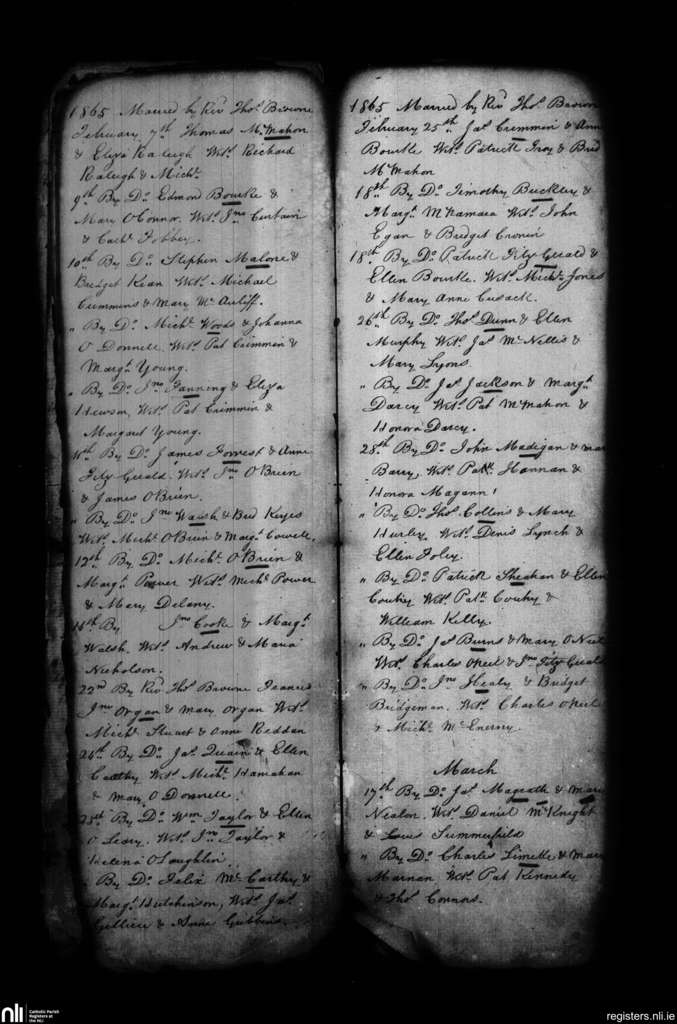 1865 Married by Revd Thos. Browne
February 7th Thomas McMahon
& Eliza Raleigh Wits. Richard
Raleigh & Michl.
9th By Do. Edmond Bourke &
Mary O'Connor. Wits. Jno.
& Cath.
10th By Do. Stephen Malone &
Bridget Kean Wits. Michael
Cummins & Mary McAuliff.
" By Do. Michl. Woods & Johanna
O Donnell. Wits. Pat Crimmin &
Margt. Young.
" By Do. Jno. Fanning & Eliza
Hewson, Wits. Pat Crimmin &
Margaret Young.
By Do. James Forrest & Anne
Fitz Gerald. Wits. Jno. O'Brien
& James O'Brien.
" By Do. Jno. Walsh & Brd Keyes
Wits. Michl. O'Brien & Margt.
12th By Do. Michl. O'Brien &
Margt. Power Wits. Michl. Power
& Mary Delany.
By Jno. Cooke & Margt.
Walsh. Wits. Andrew & Maria
Nicholson.
22nd By Revd Thos. Browne
Jno. Organ & Mary Organ Wits.
Michl. Stuart & Anne Reddan
By Do. Jas. Quain & Ellen
Wits. Michl. Hanrahan
& Mary O Donnell.
25th By Do. Wm. Taylor & Ellen
O Leary. Wits. Jno. Taylor &
Helena O'Loughlin.
By Do. Felix McCarthy &
Margt. Hutchinson, Wits. Jas.
& Anne Gubbins.
1865 Married by Revd Thos. Browne
February 25th Jas. Crimmin & Ann
Bourke Wits. Patrick Troy & Brd
McMahon
18th By Do. Timothy Buckley &
Margt. McNamara Wits. John
Egan & Bridget Cronin
18th By Do. Patrick Fitz Gerald &
Ellen Bourke. Wits. Michl. Jones
& Mary Anne Cusack.
26th By Do. Thos. Dunn & Ellen
Murphy Wits. Jas. McNellis &
Mary Lyons.
" By Do. Jas. Jackson & Margt.
Darcy Wits. Pat McMahon &
Honora Darcy.
28th By Do. John Madigan & Mary
Barry, Wits. Patk. Hannan &
Honora Magann
" By Do. Thos. Collins & Mary
Hurley Wits. Denis Lynch &
Ellen Foley.
" By Do. Patrick Sheahan & Ellen
Wits. Patk. &
William Kelly.
" By Do. Jas. Burns & Mary O Neil
Wits. Charles O'Neil & Jno. Fitz Gerald
" By Do. Jno. Healy & Bridget
Bridgeman. Wits. Charles O'Neil
& Michl. McEnerny.
March
17th By Do. Jas. Magrath & Mary
Nealon. Wits. Daniel McKnight
& Summerfield
" By Do. Charles & Mary
Marnan Wits. Pat Kennedy
& Thos. Connors.
nli Catholic Parish
Registers at
the NLI
registers.nli.ie